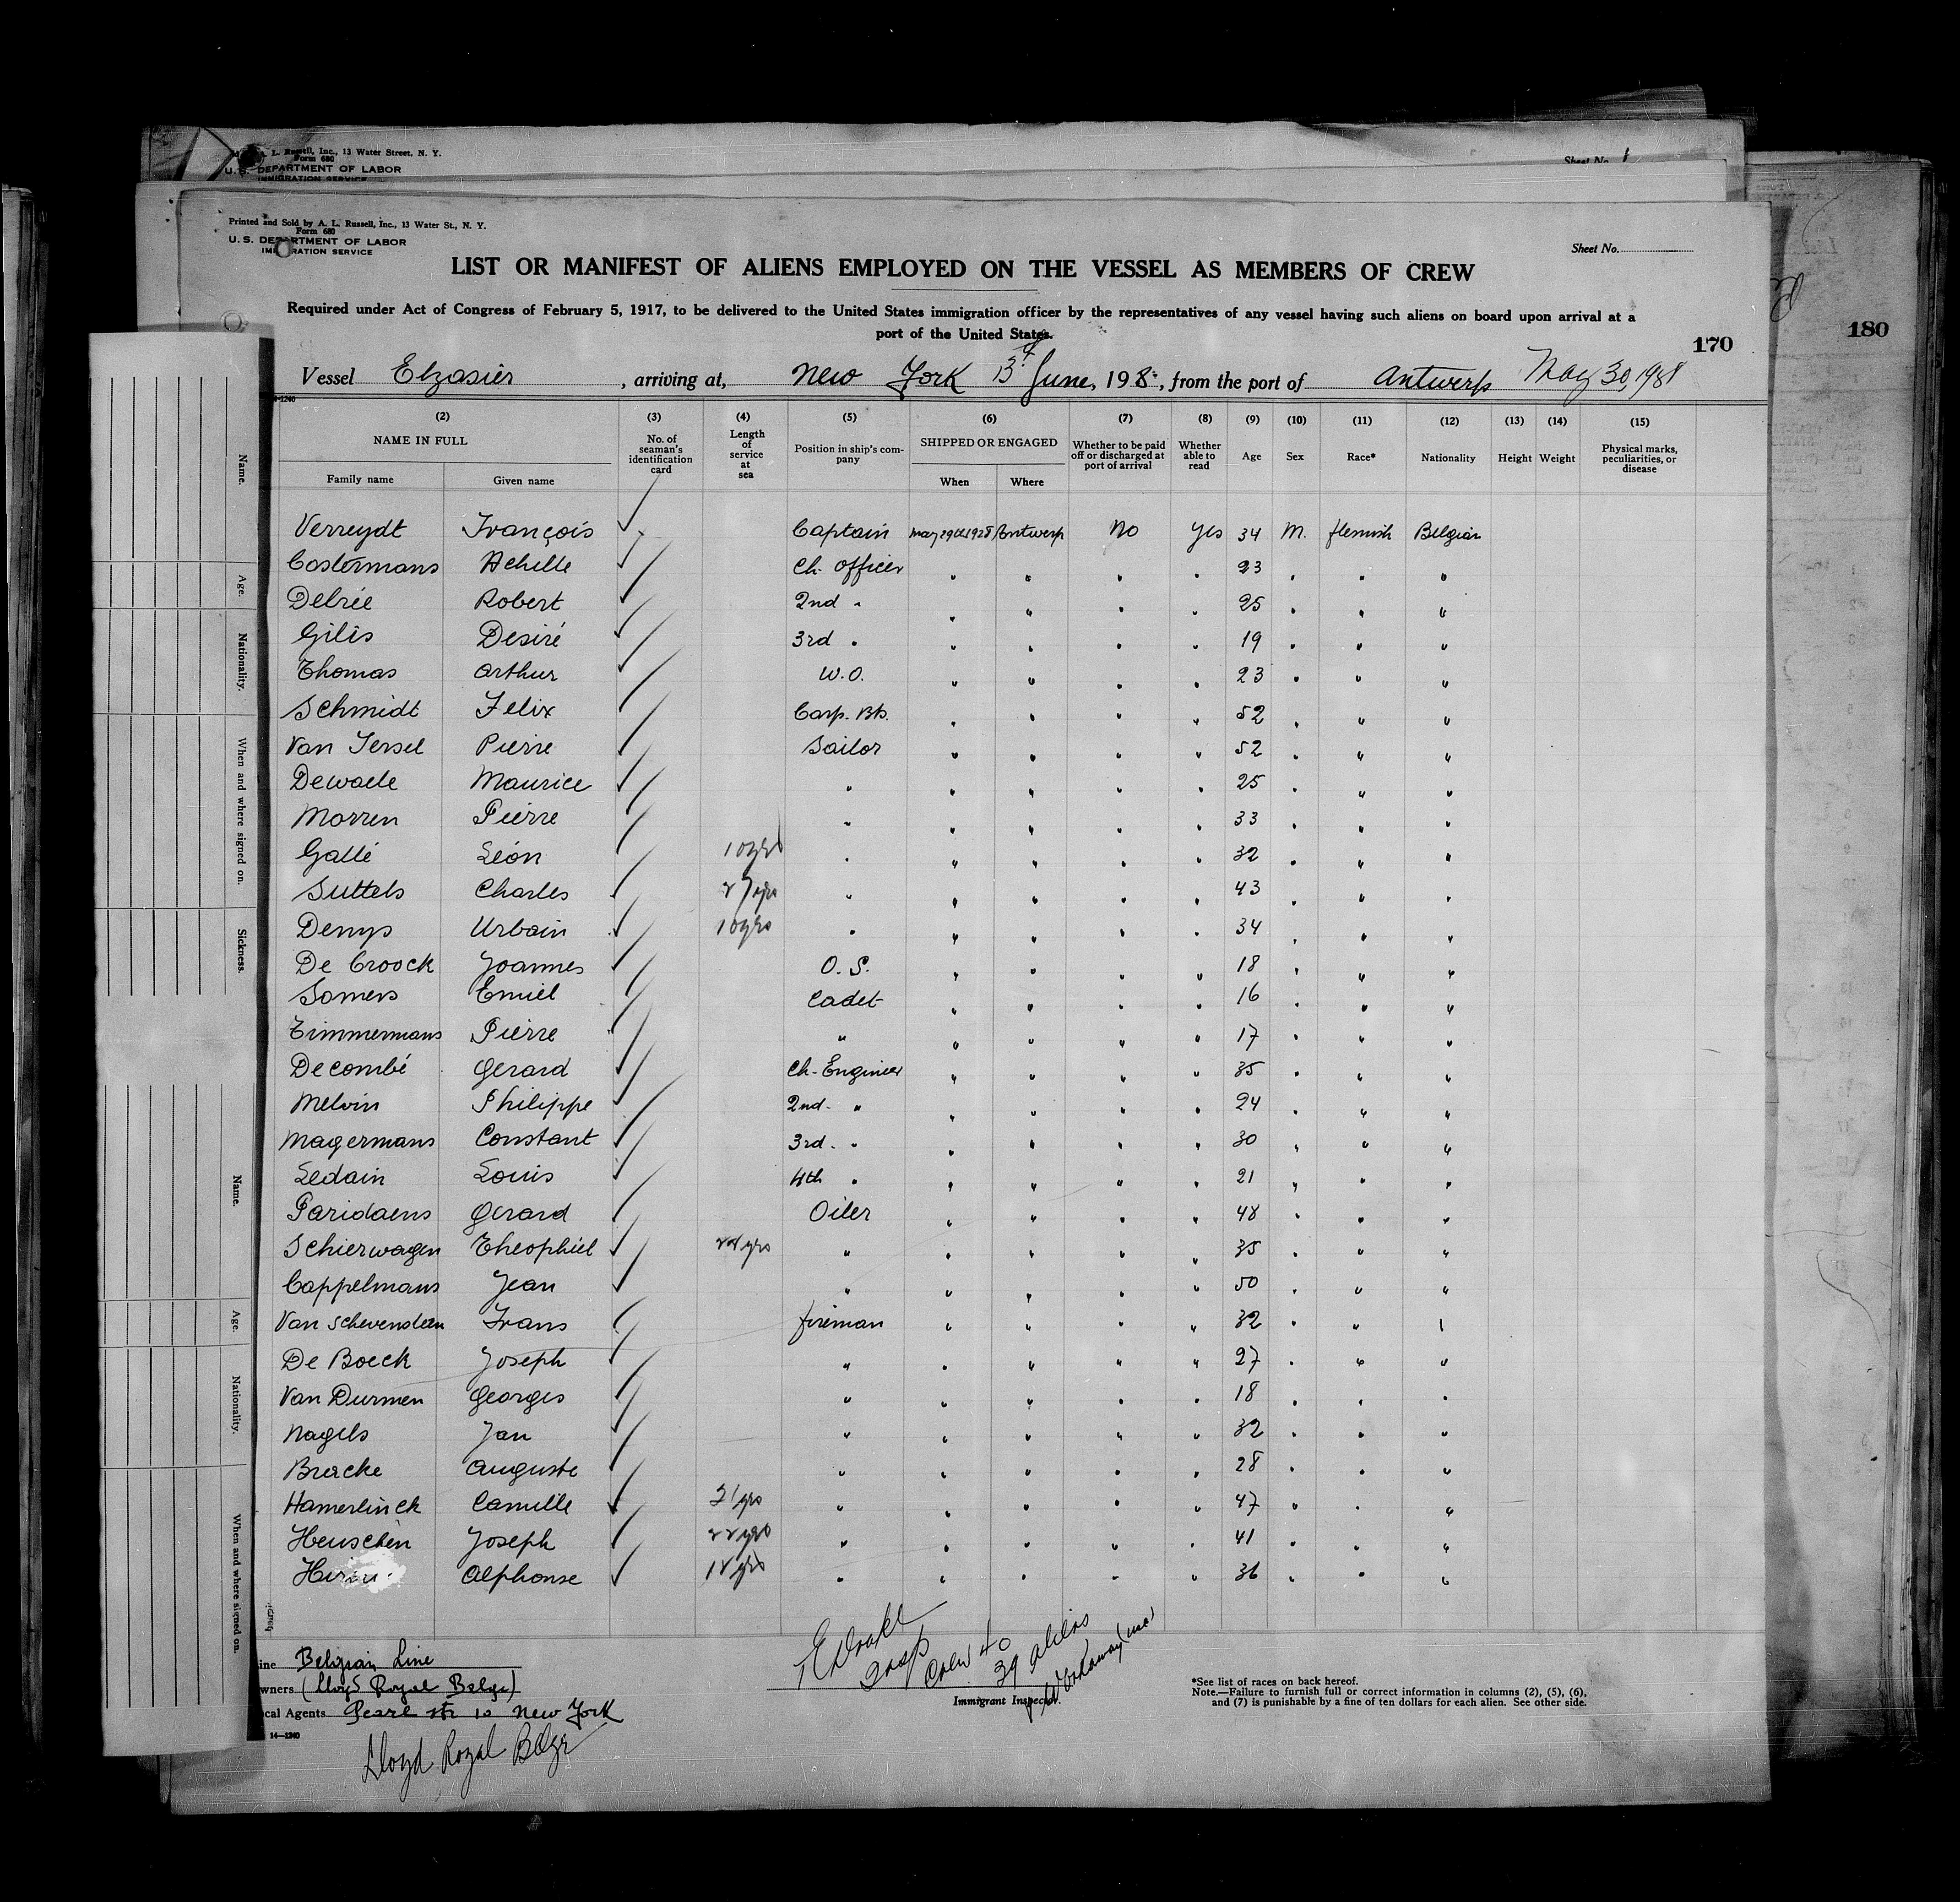 A. L. Russell, Inc., 13 Water Street, N. Y.
Form 680
U. S. DEPARTMENT OF LABOR
IMMIGRATION SERVICE
Sheet No. 1
Printed and Sold by A. L. Russell, Inc., 13 Water St., N. Y.
Form 680
U. S. DEPARTMENT OF LABOR
IMMIGRATION SERVICE
Sheet No.
LIST OR MANIFEST OF ALIENS EMPLOYED ON THE VESSEL AS MEMBERS OF CREW
Required under Act of Congress of February 5, 1917, to be delivered to the United States immigration officer by the representatives of any vessel having such aliens on board upon arrival at a
port of the United States.
170
180
Vessel Elzasier, arriving at, New York June, 198, from the port of Antwerp May 30, 1928
(2) (3) (4) (5) (6) (7) (8) (9) (10) (11) (12) (13) (14) (15)
NAME IN FULL No. of seaman's identification card Length of service at sea Position in ship's company SHIPPED OR ENGAGED Whether to be paid off or discharged at port of arrival Whether able to read Age Sex Race* Nationality Height Weight Physical marks, peculiarities, or disease
Family name Given name When Where
Verreydt François Captain May 29th 1928 Antwerp No Yes 34 M. flemish Belgian
Costermans Achille Ch. Officer " " " " 23 " " "
Delrée Robert 2nd " " " " " 25 " " "
Gilis Desiré 3rd " " " " " 19 " " "
Thomas Arthur W.O. " " " " 23 " " "
Schmidt Felix Carp. Bts. " " " " 52 " " "
Van Iersel Pierre Sailor " " " " 52 " " "
Dewaele Maurice " " " " " 25 " " "
Morren Pierre " " " " " 33 " " "
Gallé Léon 10 yrs " " " " " 32 " " "
Suttels Charles 27 yrs " " " " " 43 " " "
Denys Urbain 10 yrs " " " " " 34 " " "
De Croock Joannes O. S. " " " " 18 " " "
Somers Emiel Cadet " " " " 16 " " "
Timmermans Pierre " " " " " 17 " " "
Decombé Gerard Ch-Engineer " " " " 35 " " "
Melvin Philippe 2nd. " " " " " 24 " " "
Magermans Constant 3rd. " " " " " 30 " " "
Ledain Louis 4th " " " " " 21 " " "
Paridaens Gerard Oiler " " " " 48 " " "
Schierwagen Theophiel 24 yrs " " " " " 35 " " "
Cappelmans Jean " " " " " 50 " " "
Van Schevensteen Frans fireman " " " " 32 " " "
De Boeck Joseph " " " " " 27 " " "
Van Durmen Georges " " " " " 18 " " "
Nagels Jan " " " " " 32 " " "
Buercke Auguste " " " " " 28 " " "
Hamerlinck Camille 21 yrs " " " " " 47 " " "
Heuschen Joseph 22 yrs " " " " " 41 " " "
Alphonse 18 yrs " " " " " 36 " " "
Line Belgian Line
Owners (Lloyd Royal Belge)
Local Agents Pearl str 10 New York
14—1240
Lloyd Royal Belge
Crew 40
39 aliens
Immigrant Inspector.
*See list of races on back hereof.
Note.—Failure to furnish full or correct information in columns (2), (5), (6),
and (7) is punishable by a fine of ten dollars for each alien. See other side.
Name.
Age.
Nationality.
When and where signed on.
Sickness.
Name.
Age.
Nationality.
When and where signed on.